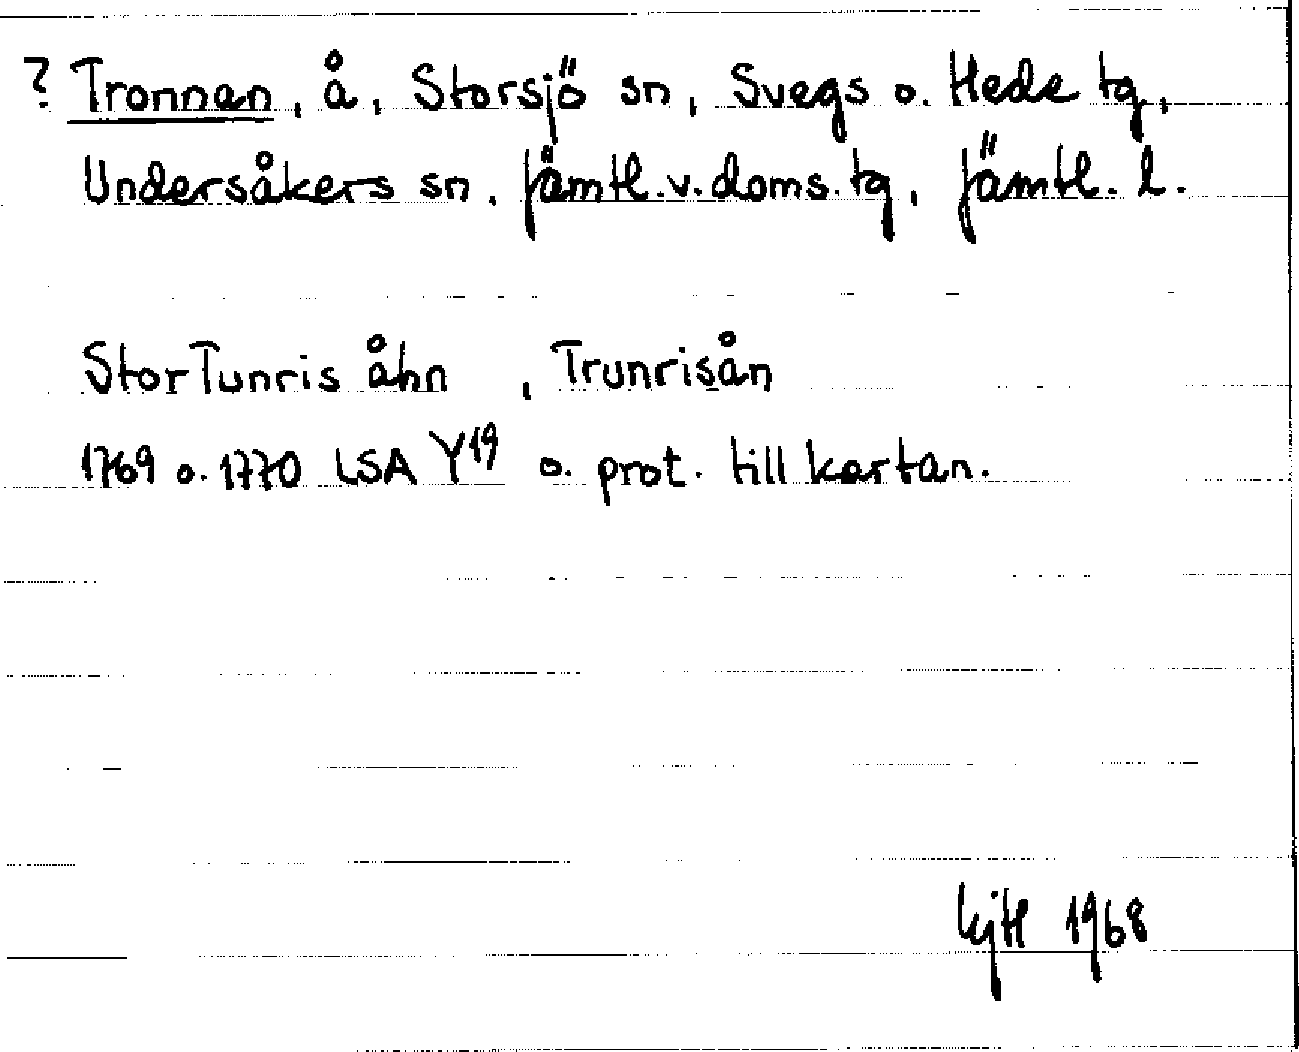 ? Tronnan, å, Storsjö sn, Svegs o. Hede tg,
Undersåkers sn. Jämtl.v.doms.tg, Jämtl. l.
Stor Tunris åhn , Trunrisån
1769 o. 1770 LSA Y19 o. prot. till kartan.
1968